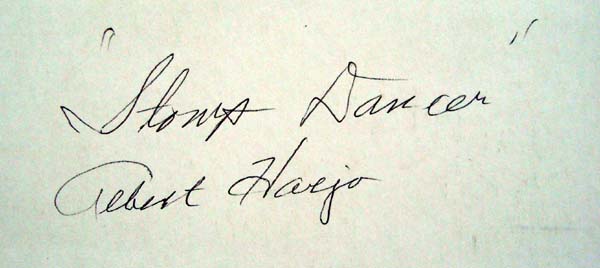 "Stomp Dancer"
Albert Harjo